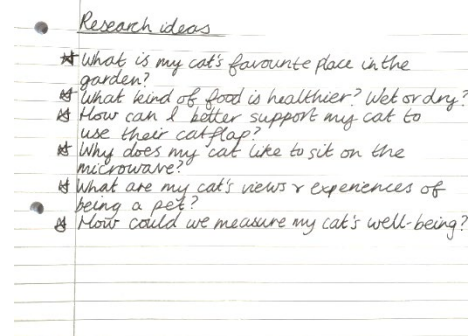 Research ideas
What is my cat's favourite place in the
garden?
What kind of food is healthier? Wet or dry?
How can I better support my cat to
use their catflap?
Why does my cat like to sit on the
microwave?
What are my cat's views & experiences of
being a pet?
How could we measure my cat's well-being?